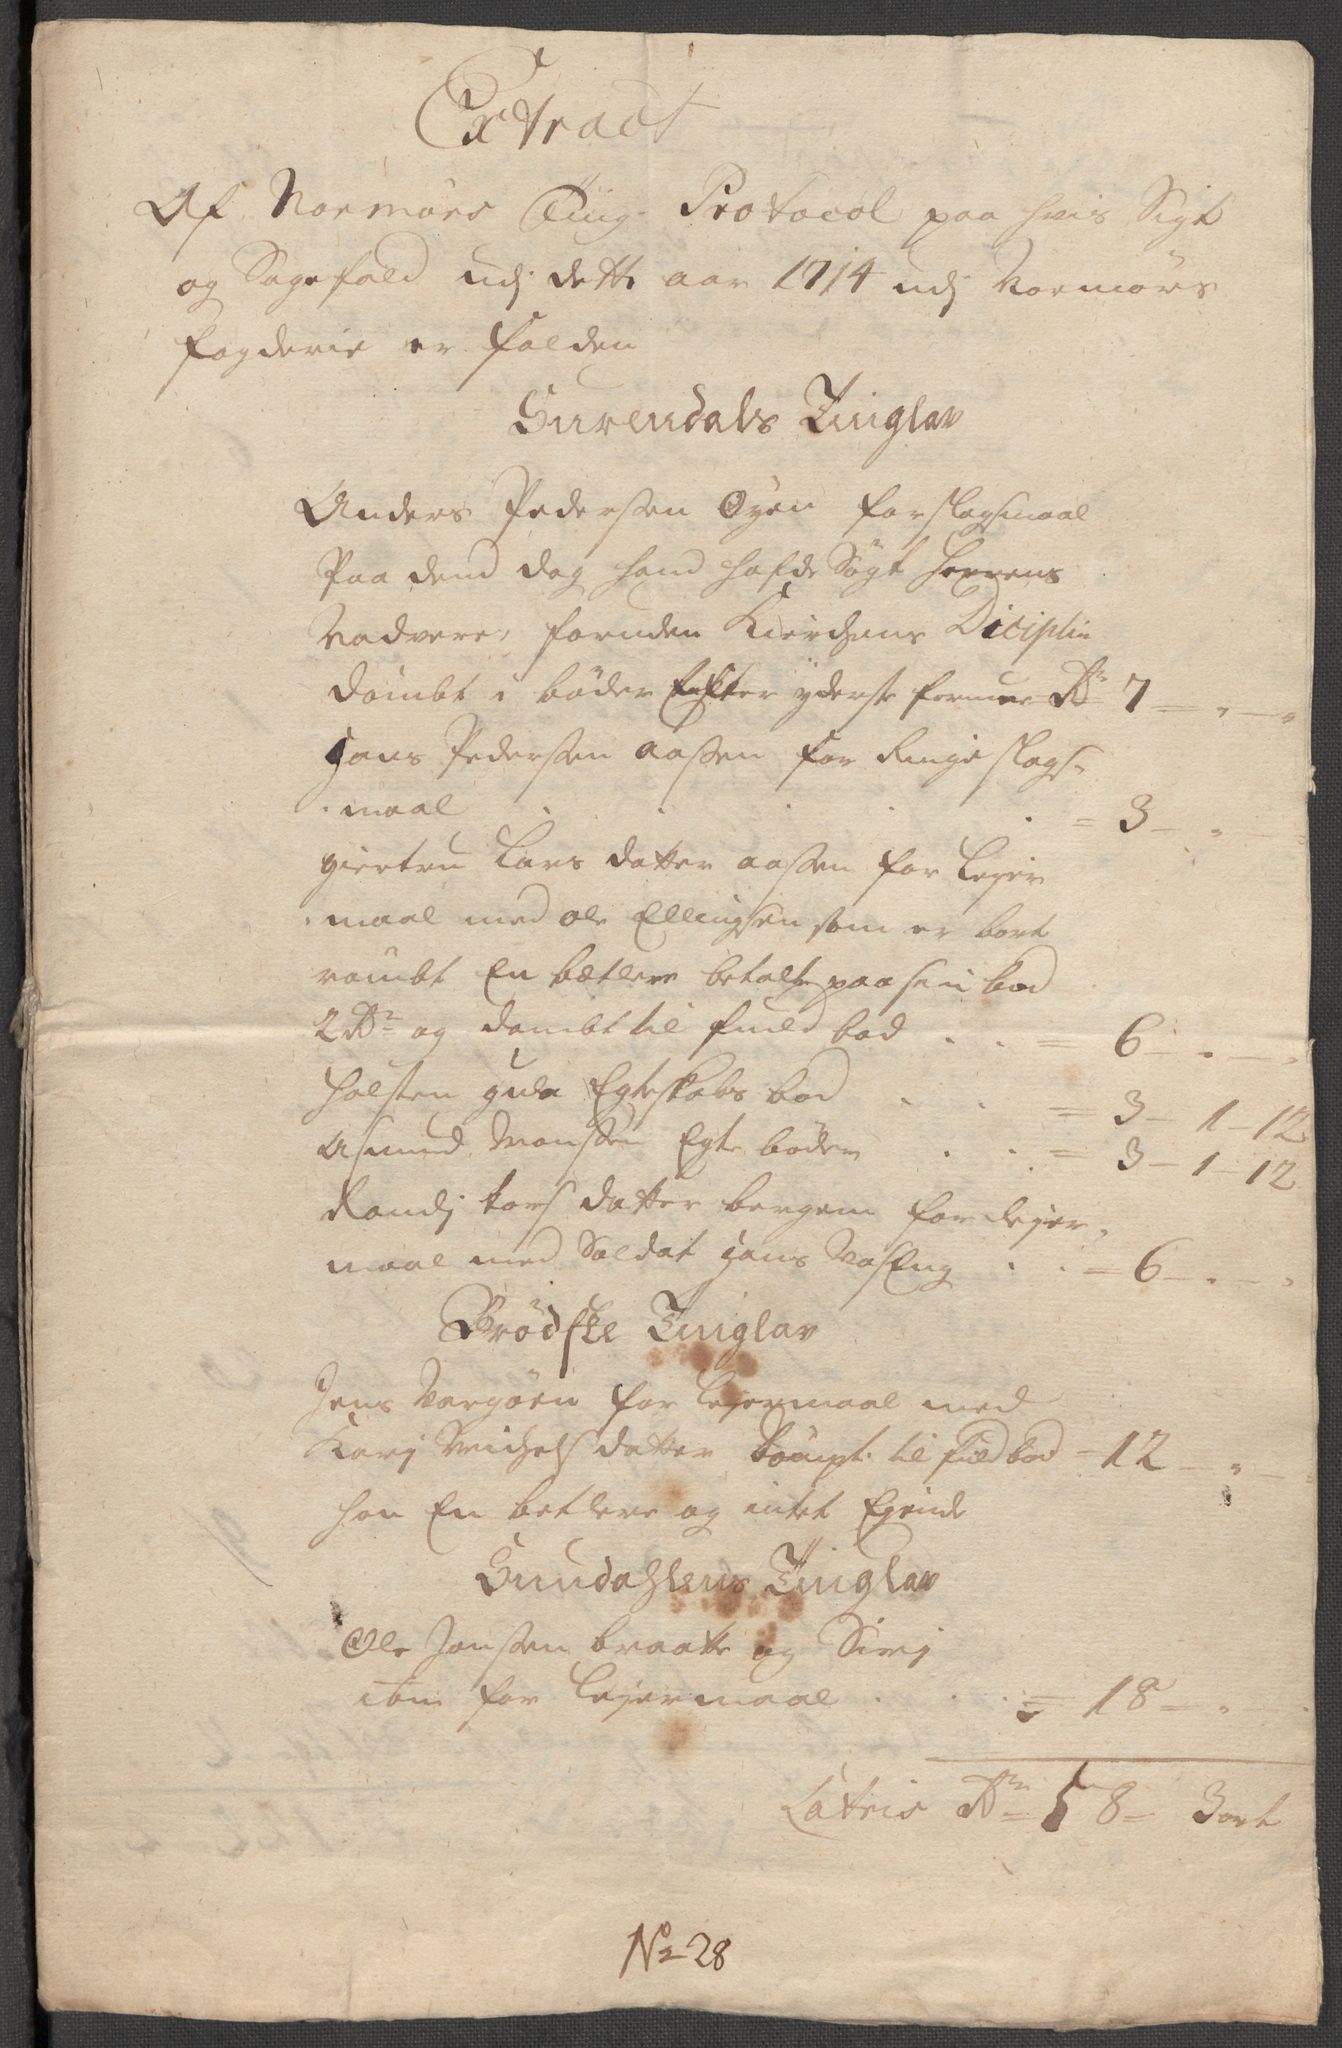 Extract
Af Normørs Ting Protocol paa hvis Sigt
og Sagefald udj dette aar 1714 udj Normørs
fogderie er falden
Surendals Tinglav
Anders Pedersen Øyen for slagsmaal
Paa dend dag hand hafde Søgt Herrens
Nadvere, foruden Kierchens Diciplin
dømbt i bøder Efter yderste formue Rdr 7 - " - "
Hans Pedersen Aassen for Ringe slags-
maal . . . . . = 3 - " -
giertru Lars datter aassen for Lejer
maal med ole Ellingsen som er bort
rømbt En bætlere betalte paa sin bod
2 Rdr og dømbt til fuld bod . . = 6 - " - "
Halsten gula Egteskabs bod . . = 3 - 1 - 12
Asmund Monssen Egte bøder . . = 3 - 1 - 12
Randj Lars datter bergem for Lejer-
maal med Soldat Hans . . = 6 - " - "
Brødske Tinglav
Jens Vargøen for Lejermaal med
Karj Michels datter dømpt til fuld bod - 12 - " -
hun En betlere og intet Ejende
Sundahlens Tinglav
Ole Jonssen braatte og Sirj
ibm for Lejermaal . . . = 18 - " -
Latris Rdr 58 - 3 ort
No 28